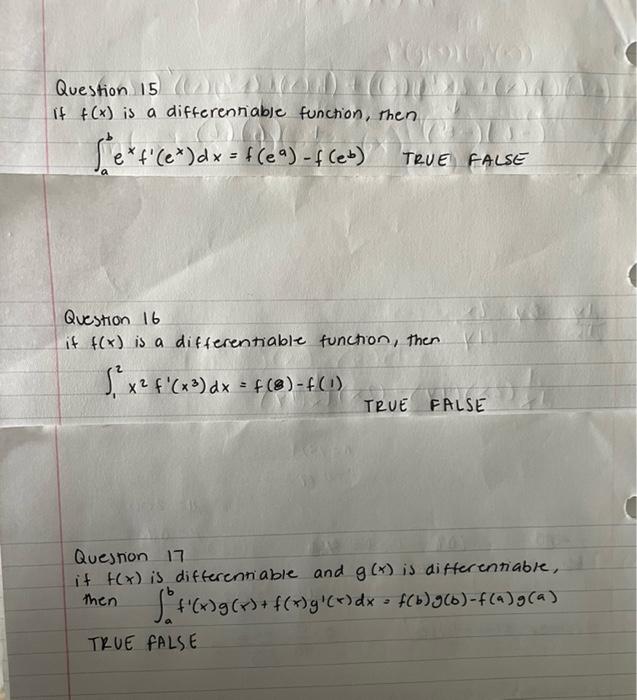 Question 15
If f(x) is a differentiable function, then
∫ₐᵇ eˣ f'(eˣ)dx = f(eᵃ) - f(eᵇ) TRUE FALSE
Question 16
if f(x) is a differentiable function, then
∫₁² x² f'(x³)dx = f(8) - f(1)
TRUE FALSE
Question 17
if f(x) is differentiable and g(x) is differentiable,
then ∫ₐᵇ f'(x)g(x) + f(x)g'(x)dx = f(b)g(b) - f(a)g(a)
TRUE FALSE